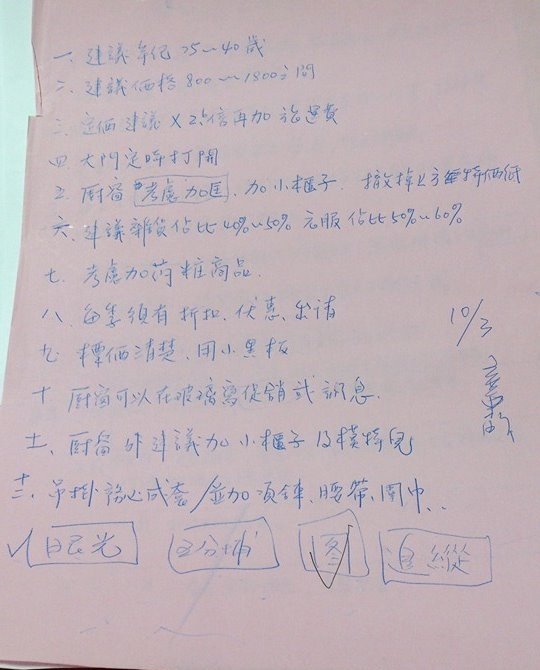 一、建議年紀 25~40歲
二、建議価格 800~1800之間
三、定価建議×2.5倍再加 運費
四 大門定時打開
五、厨窗 考慮加框、加小櫃子、撤掉 特価紙
六、建議雜貨佔比40%~50% 衣服佔比50%~60%
七、考慮加 粧商品.
八、每季須有折扣、优惠、出清
九 標価清楚、用小黑板
十、厨窗可以在玻璃寫促銷或訊息.
10/3
士、厨窗外建議加小櫃子及模特兒
十二、吊掛 成套/並加項鍊、腰帶、圍巾..
眼光 五分埔 图 追縱